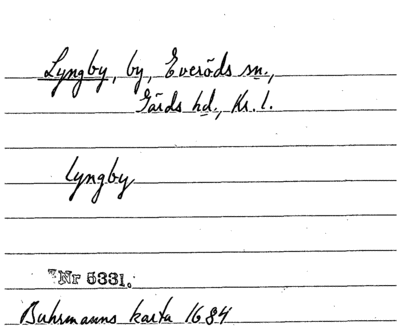 Lyngby, by, Everöds sn.,
Gärds hd., Kr. l.
Lyngby
Nr 5331.
Buhrmanns karta 1684